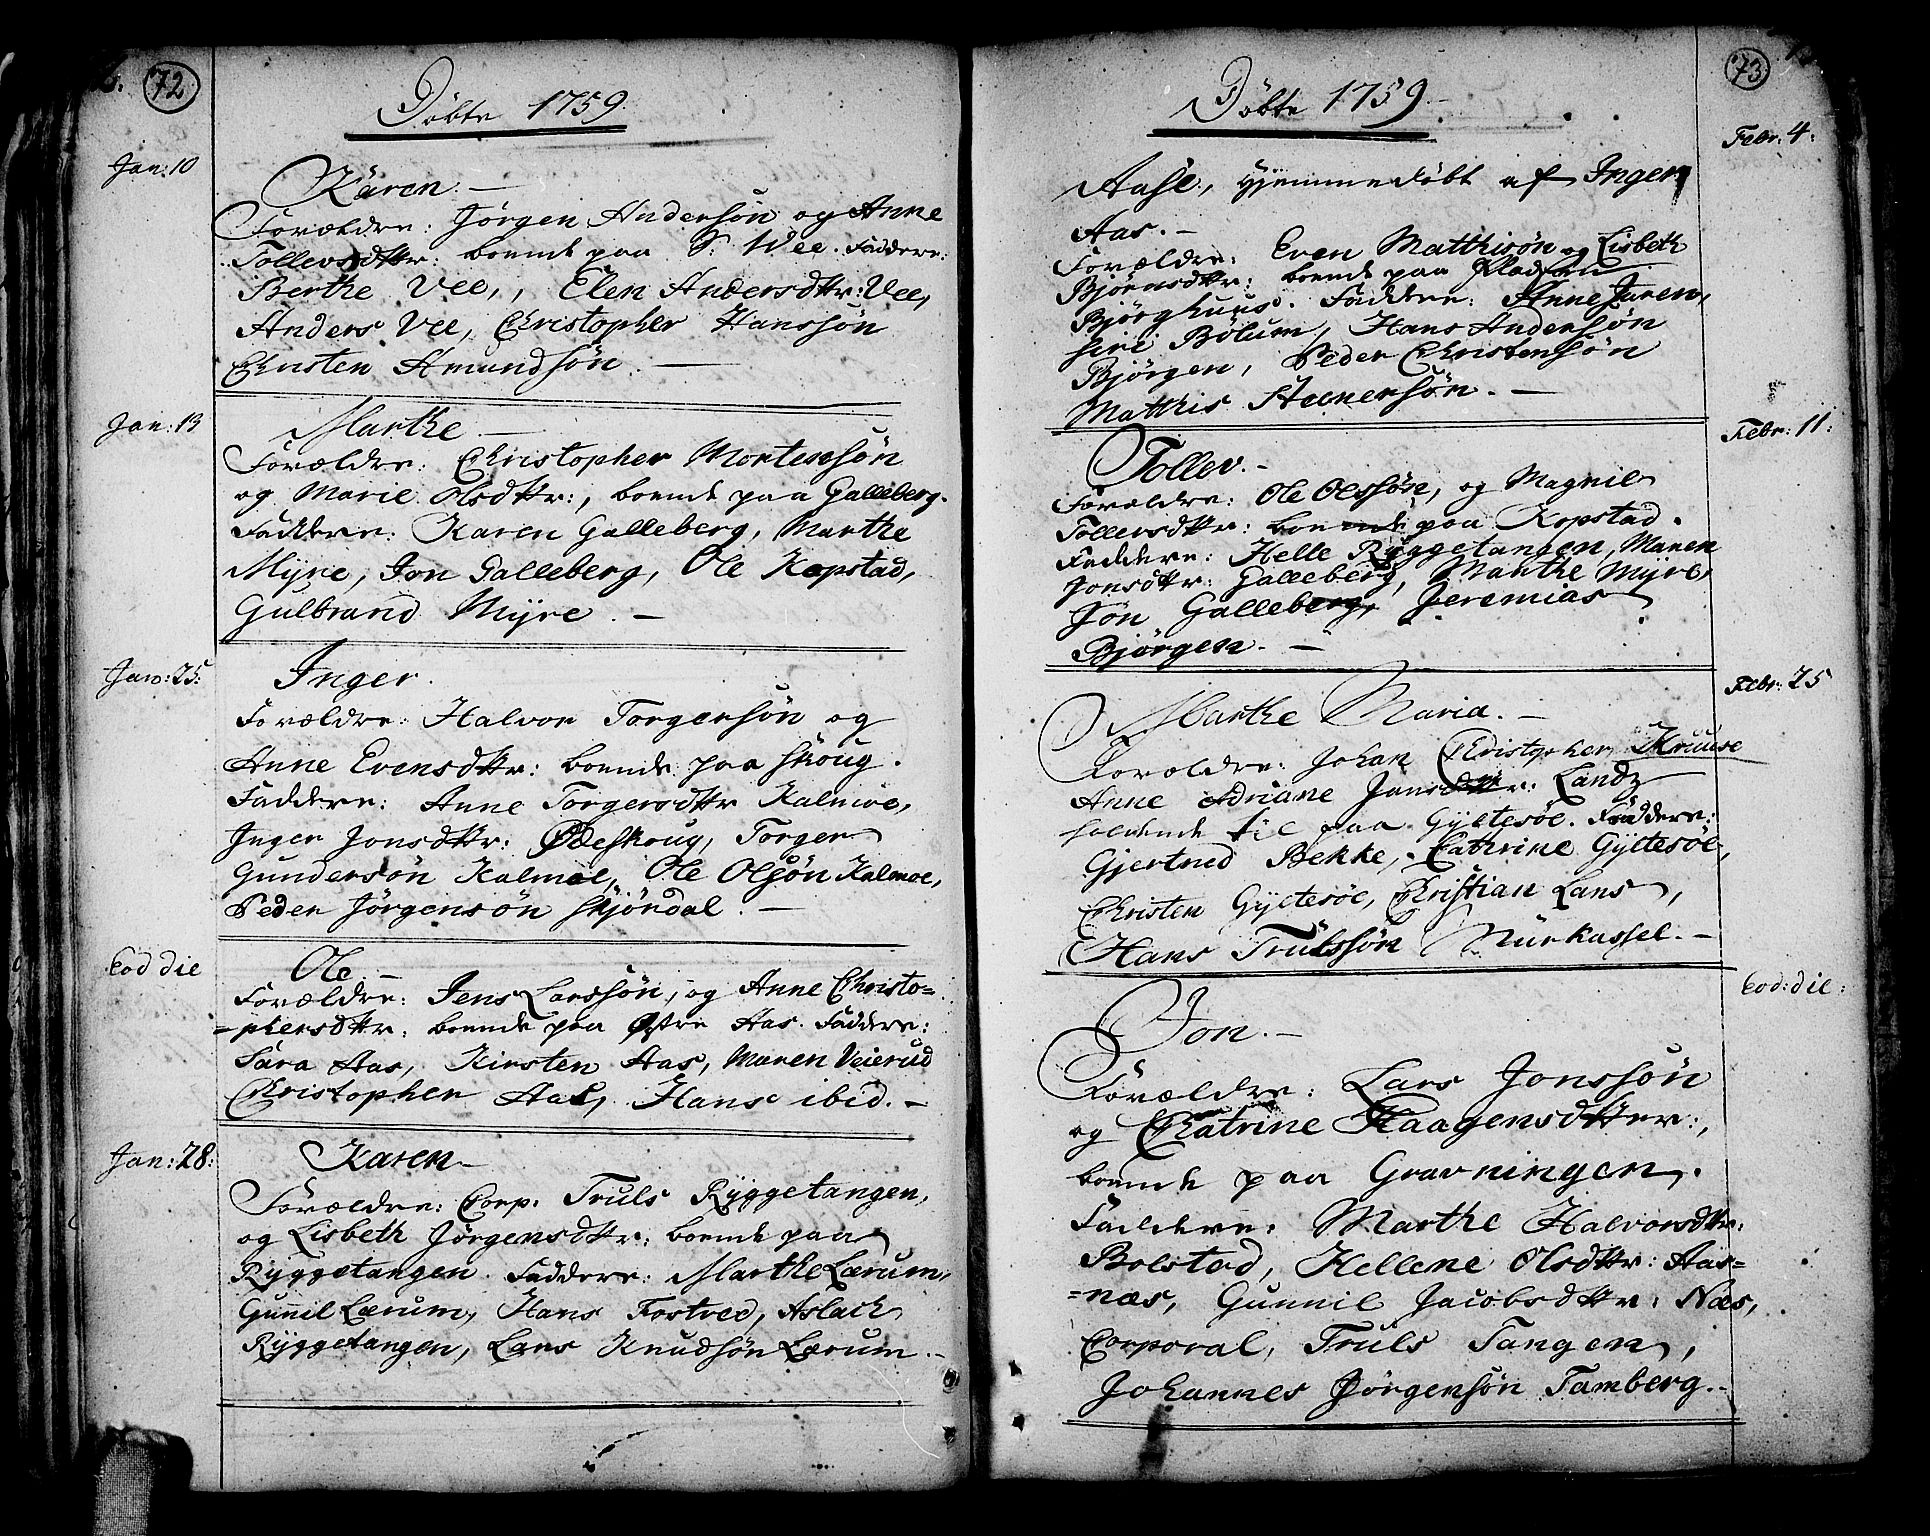 72
Döbte 1759
Jan: 10
Karen. —
Forældre: Jørgen Andersøn og Anne
Tollevsdttr: boende paa S. Wee. Faddere:
Berthe Vee, Elen Andersdttr: Vee,
Anders Vee, Christopher Hanssøn
Christen Amundsøn. —
Jan: 13
Marthe —
Forældre: Christopher Mortenssøn
og Marie Olsdttr:, boende paa Galleberg.
Faddere: Karen Galleberg, Marthe
Myre, Jon Galleberg, Ole Kopstad,
Gulbrand Myre. —
Jan: 25:
Inger.
Forældre: Halvor Torgersøn og
Anne Evensdttr: boende paa Skoug.
Faddere: Anne Torgersdttr Kalmoe,
Inger Jonsdttr: Ødeskoug, Torger
Gundersøn Kalmoe, Ole Olsøn Kalmoe,
Peder Jørgensøn Skjørdal. —
Eod die
Ole —
Forældre: Jens Larssøn, og Anne Christo=
=phersdttr: boende paa Østre Aas. Faddere:
Sara Aas, Kirsten Aas, Maren Veierud
Christopher Aas, Hans ibid. —
Jan: 28:
Karen —
Forældre: Corp. Truls Ryggetangen,
og Lisbeth Jørgensdttr: boende paa
Ryggetangen. Faddere: Marthe Lærum,
Gunnil Lærum, Hans Fostved, Aslach
Ryggetangen, Lars Knudsøn Lærum. —
73
Döbte 1759. —
Febr: 4:
Aase, Hjemmedøbt af Inger
Aas. —
Forældre: Even Matthisøn og Lisbeth
Bjørnsdttr: boende paa Pladsen
Bjørghuus. Faddere: Anne Juren,
Siri Bolum, Hans Andersøn
Bjørgen, Peder Christensøn
Matthis Steenersøn. —
Febr: 11:
Tollev. —
Forældre: Ole Olssøn, og Magnil
Tollersdttr: boende paa Kopstad.
Faddere: Helle Ryggetangen, Maren
Jonsdttr: Galleberg, Marthe Myre,
Jøn Galleberg, Jeremias
Bjørgen. —
Febr: 25
Marthe Maria. —
Forældre: Johan Christopher Kruuse
Anne Adriane Jansdttr: Landz
holdende til paa Gyltesøe. Faddere:
Gjertrud Bekke, Cathrine Gyltesøe,
Christen Gyltesøe, Christian Lans,
Hans Trulssøn Mürkassel. —
Eod: die:
Jon. —
Forældre: Lars Jonssøn
og Chatrine Haagensdtter:,
boende paa Gravningen.
Faddere: Marthe Halvorsdttr:
Bolstad, Hellene Olsdttr: Aas=
=næs, Gunnil Jacobsdttr: Næs,
Corporal, Truls Tangen,
Johannes Jørgensøn Tamberg. —